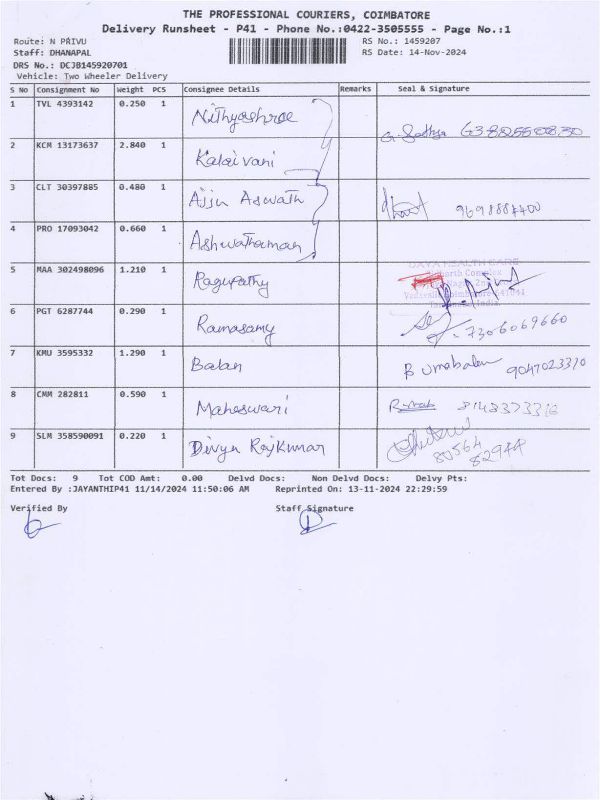 THE PROFESSIONAL COURIERS, COIMBATORE
Delivery Runsheet - P41 - Phone No.:0422-3505555 - Page No.:1
Route: N PRIVU RS No.: 1459207
Staff: DHANAPAL RS Date: 14-Nov-2024
DRS No.: DCJB145920701
Vehicle: Two Wheeler Delivery
S No Consignment No Weight PCS Consignee Details Remarks Seal & Signature
1 TVL 4393142 0.250 1 Nithyashree
2 KCM 13173637 2.840 1 Kalaivani
3 CLT 30397885 0.480 1 Ajju Aswath 9698884400
4 PRO 17093042 0.660 1 Ashwathaman
5 MAA 302498096 1.210 1 Ragupathy
6 PGT 6287744 0.290 1 Ramasamy 7306069660
7 KMU 3595332 1.290 1 Balan B Umabalan 9047023310
8 CMM 282811 0.590 1 Maheswari
9 SLM 358590091 0.220 1 Divya Rajkumar 80564
82944
Tot Docs: 9 Tot COD Amt: 0.00 Delvd Docs: Non Delvd Docs: Delvy Pts:
Entered By :JAYANTHIP41 11/14/2024 11:50:06 AM Reprinted On: 13-11-2024 22:29:59
Verified By Staff Signature